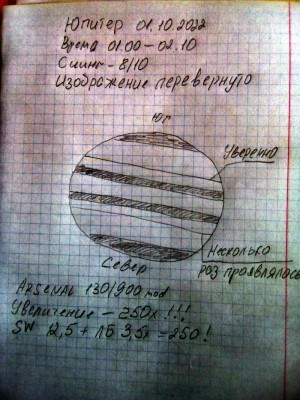 Юпитер 01.10.2022
Время 01.00-02.10
Сиинг - 8/10
Изображение перевернуто
Юг
Уверенно
Несколько
раз проявлялось
Север
Arsenal 130/900 mod
Увеличение - 250х!!!
SW 2,5 + ЛБ 3,5х = 250!